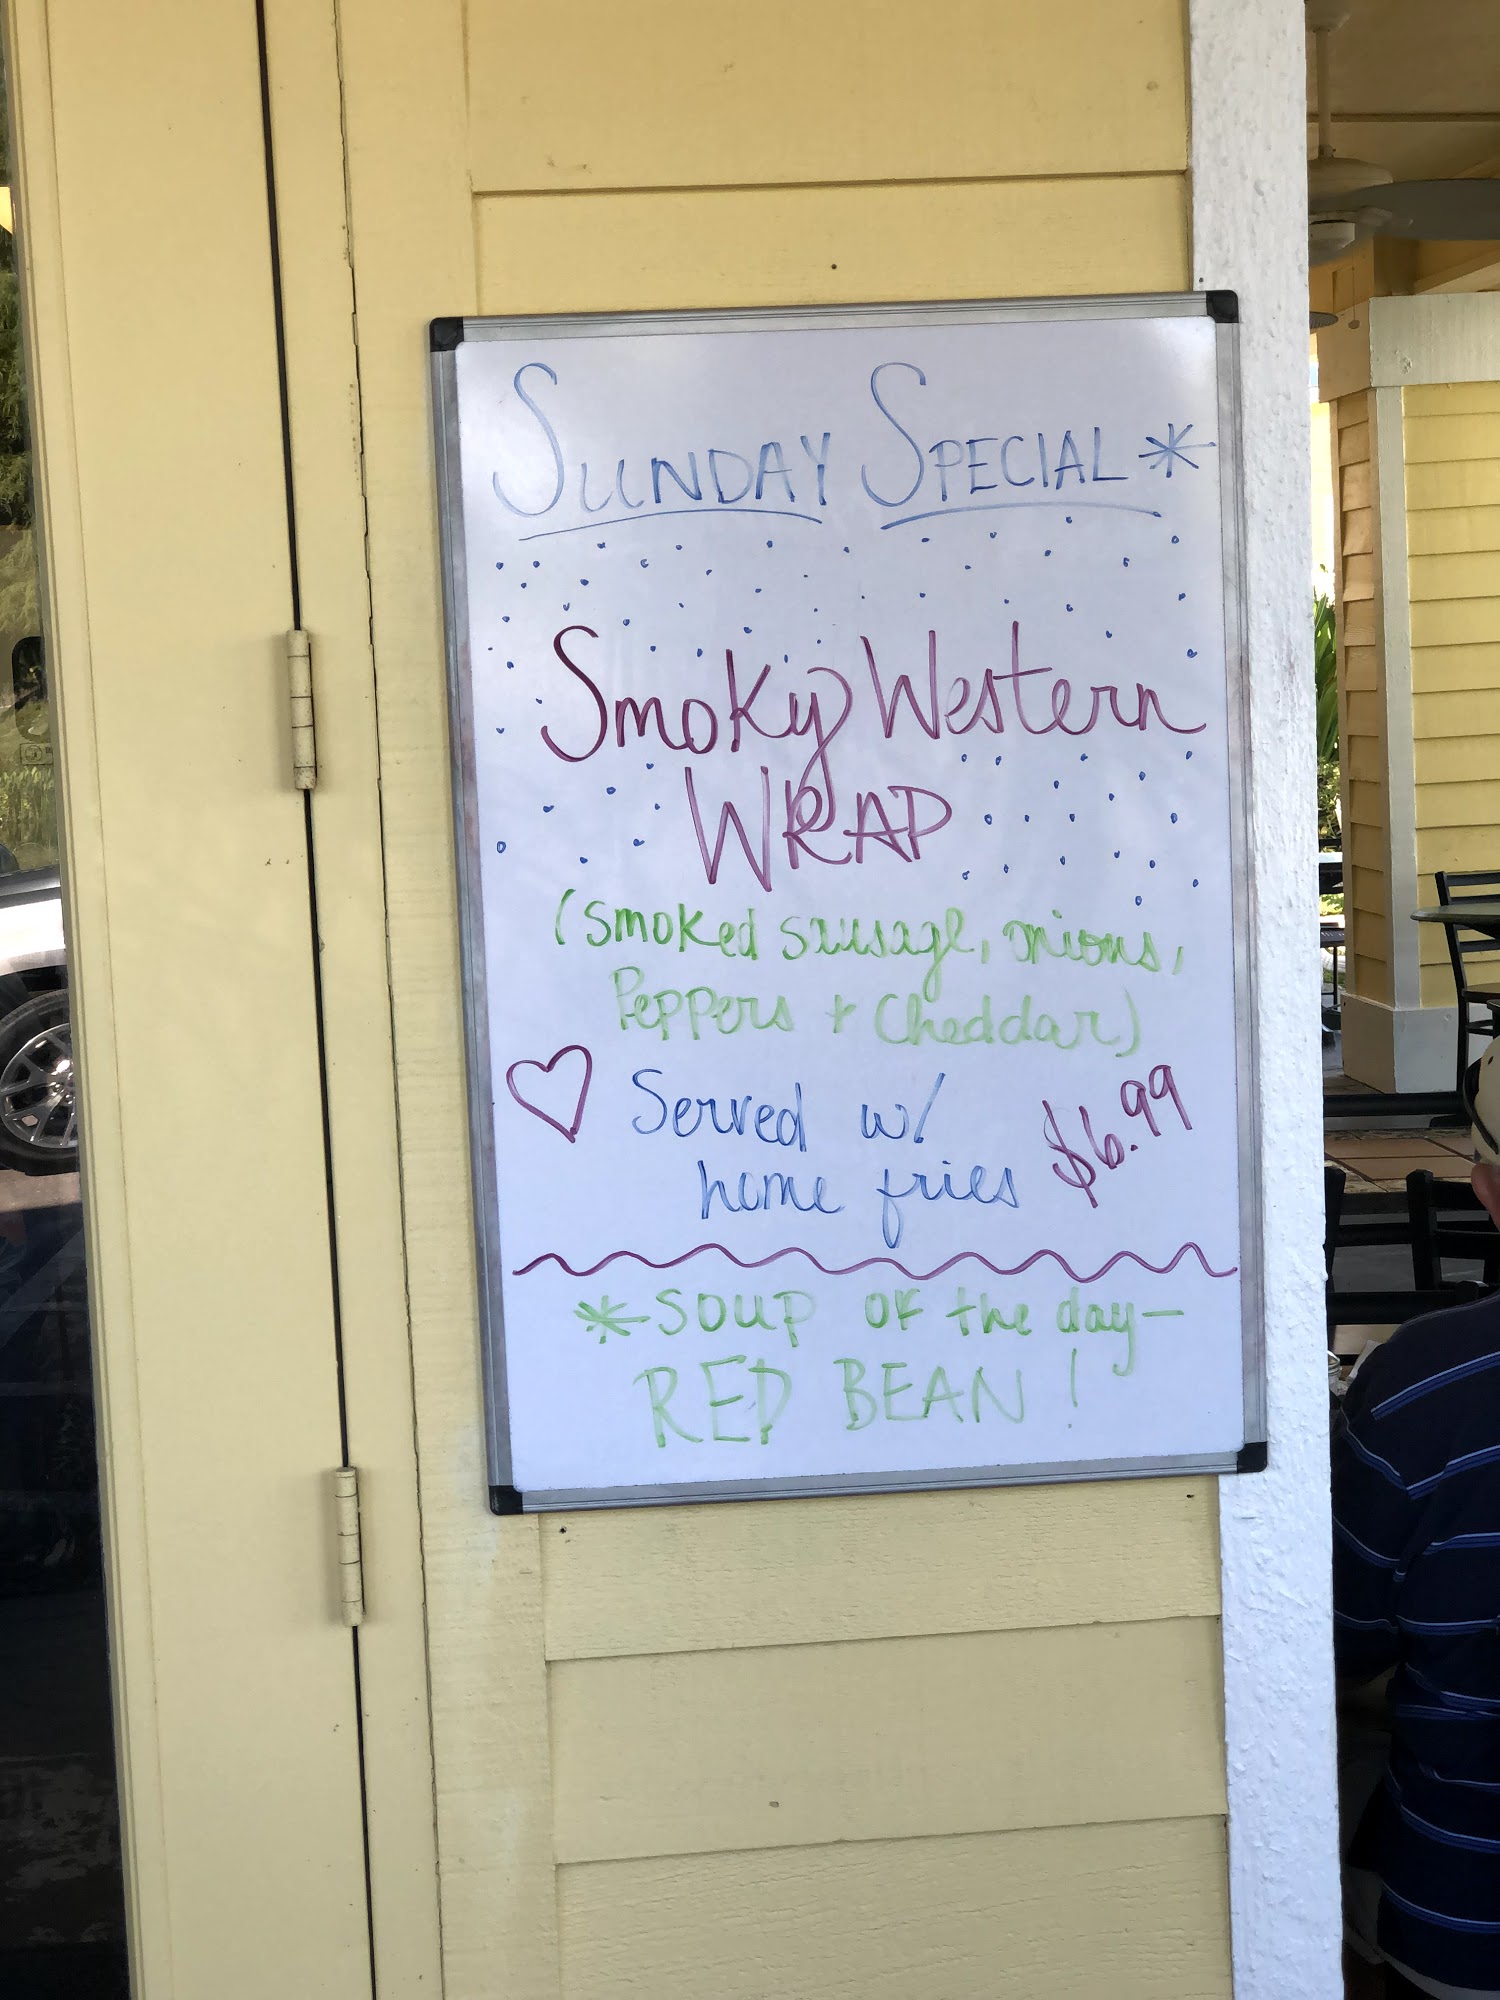 SUNDAY SPECIAL *
Smoky Western
WRAP
(Smoked sausage, onions,
Peppers + Cheddar)
♡ Served w/
home fries $6.99
* SOUP OF the day-
RED BEAN!